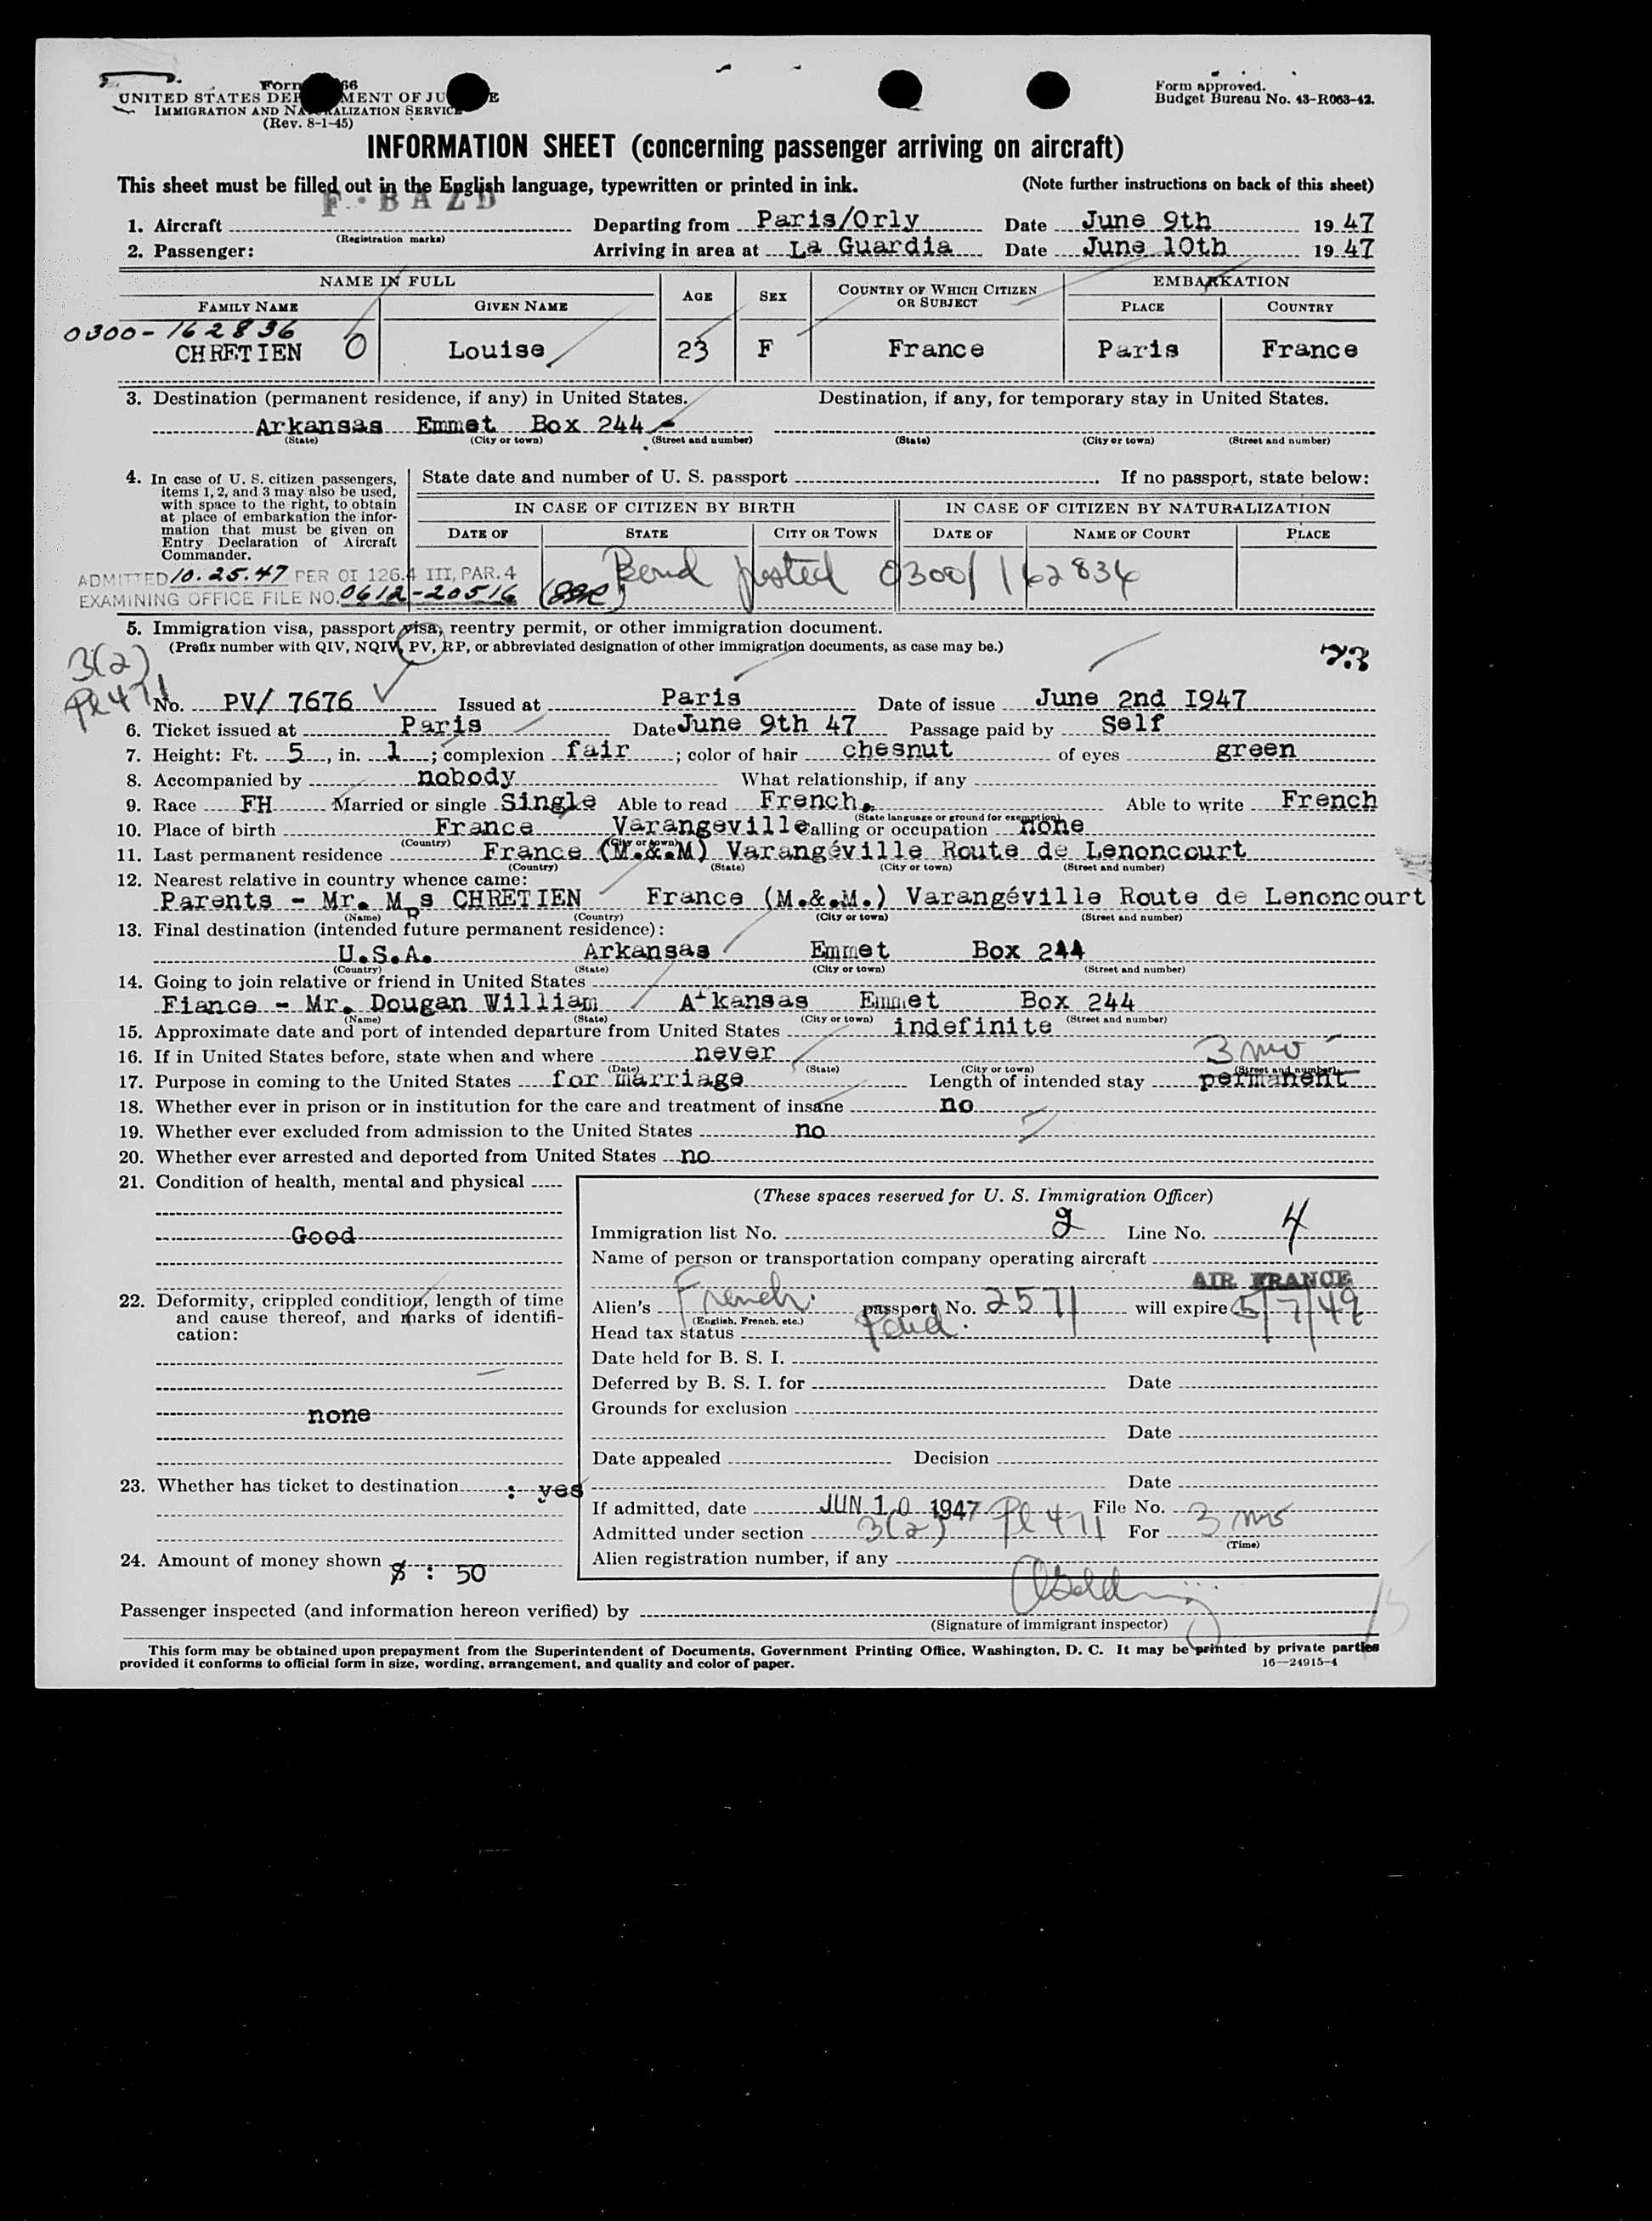 Form 66
UNITED STATES DEP MENT OF JU E
IMMIGRATION AND NA RALIZATION SERVICE
(Rev. 8-1-45)
Form approved.
Budget Bureau No. 43-R063-42.
INFORMATION SHEET (concerning passenger arriving on aircraft)
This sheet must be filled out in the English language, typewritten or printed in ink. (Note further instructions on back of this sheet)
F-BAZD
1. Aircraft Departing from Paris/Orly Date June 9th 19 47
(Registration marks)
2. Passenger: Arriving in area at La Guardia Date June 10th 19 47
NAME IN FULL AGE SEX COUNTRY OF WHICH CITIZEN OR SUBJECT EMBARKATION
FAMILY NAME GIVEN NAME PLACE COUNTRY
0300-162836
CHRETIEN 0 Louise 23 F France Paris France
3. Destination (permanent residence, if any) in United States. Destination, if any, for temporary stay in United States.
Arkansas Emmet Box 244
(State) (City or town) (Street and number) (State) (City or town) (Street and number)
4. In case of U. S. citizen passengers, items 1, 2, and 3 may also be used, with space to the right, to obtain at place of embarkation the information that must be given on Entry Declaration of Aircraft Commander.
State date and number of U. S. passport If no passport, state below:
IN CASE OF CITIZEN BY BIRTH IN CASE OF CITIZEN BY NATURALIZATION
DATE OF STATE CITY OR TOWN DATE OF NAME OF COURT PLACE
Bond posted 0300/162836
ADMITTED 10.25.47 PER OI 126.4 III, PAR. 4
EXAMINING OFFICE FILE NO. 0612-20516
5. Immigration visa, passport visa, reentry permit, or other immigration document.
(Prefix number with QIV, NQIV, PV, RP, or abbreviated designation of other immigration documents, as case may be.)
3(2)
Pl 471
No. PV/ 7676 Issued at Paris Date of issue June 2nd I947
6. Ticket issued at Paris Date June 9th 47 Passage paid by Self
7. Height: Ft. 5, in. 1; complexion fair; color of hair chesnut of eyes green
8. Accompanied by nobody What relationship, if any
9. Race FH Married or single Single Able to read French. Able to write French
(State language or ground for exemption)
10. Place of birth France Varangeville Calling or occupation none
(Country) (City or town)
11. Last permanent residence France (M.&.M) Varangéville Route de Lenoncourt
(Country) (State) (City or town) (Street and number)
12. Nearest relative in country whence came:
Parents - Mr. MRs CHRETIEN France (M.&.M.) Varangéville Route de Lenoncourt
(Name) (Country) (City or town) (Street and number)
13. Final destination (intended future permanent residence):
U.S.A. Arkansas Emmet Box 244
(Country) (State) (City or town) (Street and number)
14. Going to join relative or friend in United States
Fiance - Mr. Dougan William Arkansas Emmet Box 244
(Name) (State) (City or town) (Street and number)
15. Approximate date and port of intended departure from United States indefinite
16. If in United States before, state when and where never
(Date) (State) (City or town) (Street and number)
3 mo
17. Purpose in coming to the United States for marriage Length of intended stay permanent
18. Whether ever in prison or in institution for the care and treatment of insane no
19. Whether ever excluded from admission to the United States no
20. Whether ever arrested and deported from United States no
21. Condition of health, mental and physical
Good
22. Deformity, crippled condition, length of time and cause thereof, and marks of identification:
none
23. Whether has ticket to destination : yes
24. Amount of money shown $ : 50
(These spaces reserved for U. S. Immigration Officer)
Immigration list No. 2 Line No. 4
Name of person or transportation company operating aircraft
AIR FRANCE
Alien's French passport No. 2571 will expire 5/7/49
(English, French, etc.)
Head tax status Paid.
Date held for B. S. I.
Deferred by B. S. I. for Date
Grounds for exclusion
Date
Date appealed Decision
Date
If admitted, date JUN 10 1947 File No.
Admitted under section 3(2) Pl 471 For 3 mo
(Time)
Alien registration number, if any
Passenger inspected (and information hereon verified) by
(Signature of immigrant inspector)
This form may be obtained upon prepayment from the Superintendent of Documents, Government Printing Office, Washington, D. C. It may be printed by private parties
provided it conforms to official form in size, wording, arrangement, and quality and color of paper. 16—24915-4